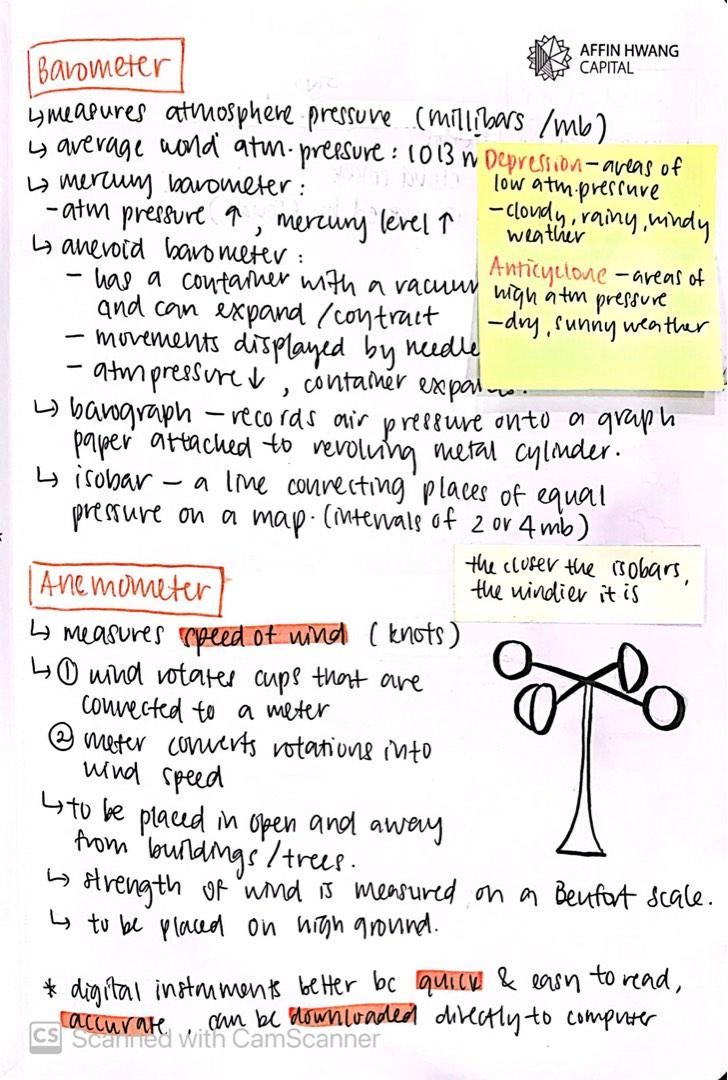 AFFIN HWANG
CAPITAL
Barometer
↳ measures atmosphere pressure (millibars /mb)
↳ average world atm. pressure : 1013 m
↳ mercury barometer :
- atm pressure ↑ , mercury level ↑
↳ aneroid barometer :
- has a container with a vacuum
and can expand / contract
- movements displayed by needle
- atm pressure ↓ , container
↳ barograph - records air pressure onto a graph
paper attached to revolving metal cylinder.
↳ isobar - a line connecting places of equal
pressure on a map. (intervals of 2 or 4 mb)
Depression - areas of
low atm. pressure
- cloudy, rainy, windy
weather
Anticyclone - areas of
high atm pressure
- dry, sunny weather
the closer the isobars,
the windier it is
Anemometer
↳ measures speed of wind (knots)
↳ ① wind rotates cups that are
connected to a meter
② meter converts rotations into
wind speed
↳ to be placed in open and away
from buildings / trees.
↳ strength of wind is measured on a Beufort scale.
↳ to be placed on high ground.
* digital instruments better bc quick & easy to read,
accurate , can be downloaded directly to computer
CS Scanned with CamScanner